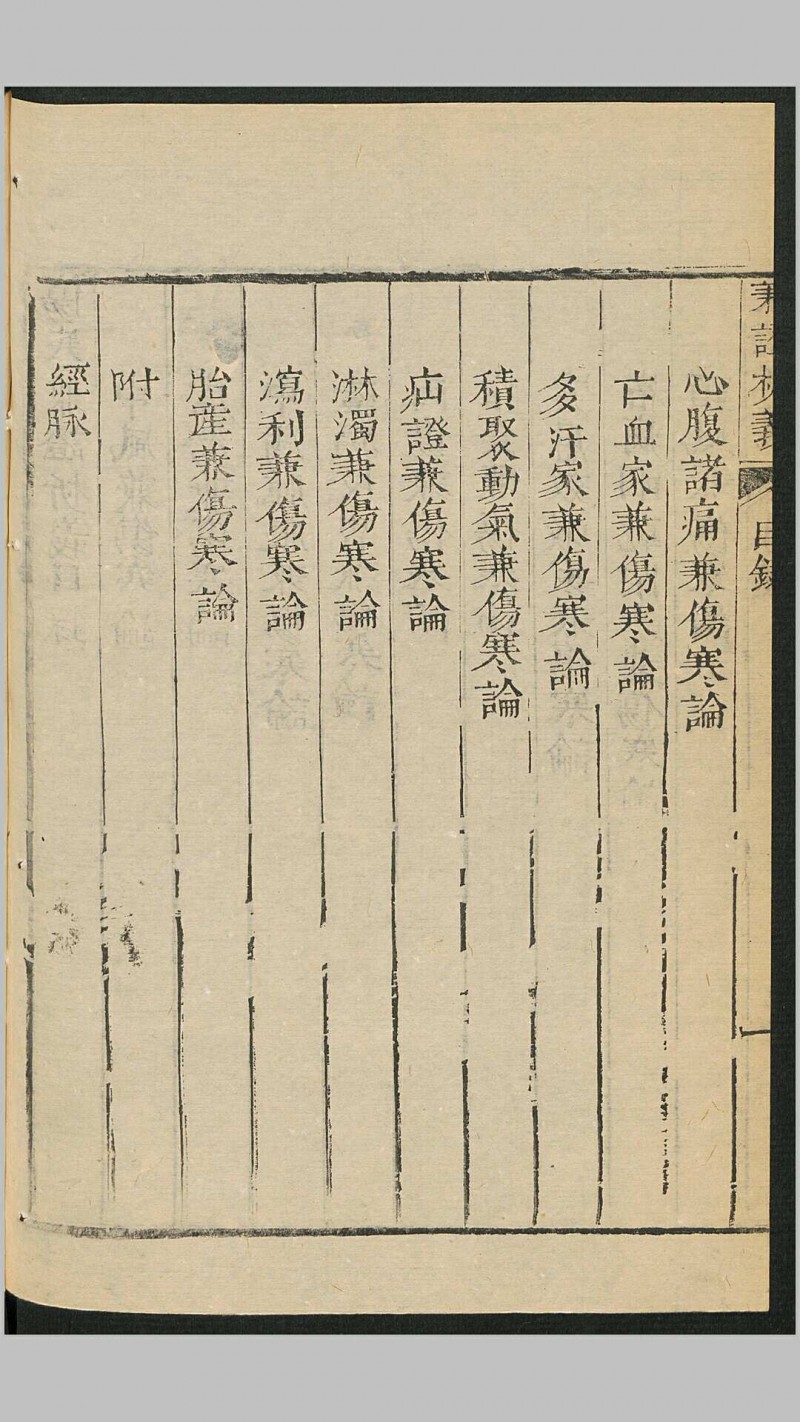 兼證析義 目錄 一
心腹諸痛兼傷寒論
亡血家兼傷寒論
多汗家兼傷寒論
積聚動氣兼傷寒論
疝證兼傷寒論
淋濁兼傷寒論
瀉利兼傷寒論
胎產兼傷寒論
附
經脉